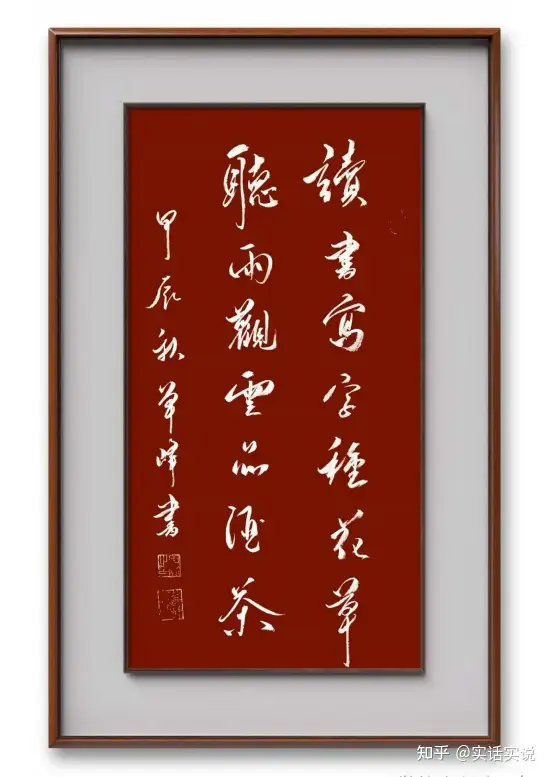 讀書寫字種花草
聽雨觀雲品酒茶
甲辰秋草峰書
知乎 @实话实说